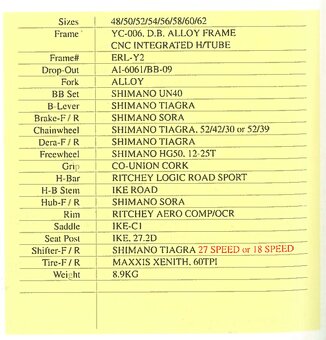 Sizes 48/50/52/54/56/58/60/62
Frame YC-006. D.B. ALLOY FRAME
CNC INTEGRATED H/TUBE
Frame# ERL-Y2
Drop-Out AI-6061/BB-09
Fork ALLOY
BB Set SHIMANO UN40
B-Lever SHIMANO TIAGRA
Brake-F / R SHIMANO SORA
Chainwheel SHIMANO TIAGRA. 52/42/30 or 52/39
Dera-F / R SHIMANO TIAGRA
Freewheel SHIMANO HG50. 12-25T
Grip CO-UNION CORK
H-Bar RITCHEY LOGIC ROAD SPORT
H-B Stem IKE ROAD
Hub-F / R SHIMANO SORA
Rim RITCHEY AERO COMP/OCR
Saddle IKE-C1
Seat Post IKE. 27.2D
Shifter-F / R SHIMANO TIAGRA 27 SPEED or 18 SPEED
Tire-F / R MAXXIS XENITH. 60TPI
Weight 8.9KG